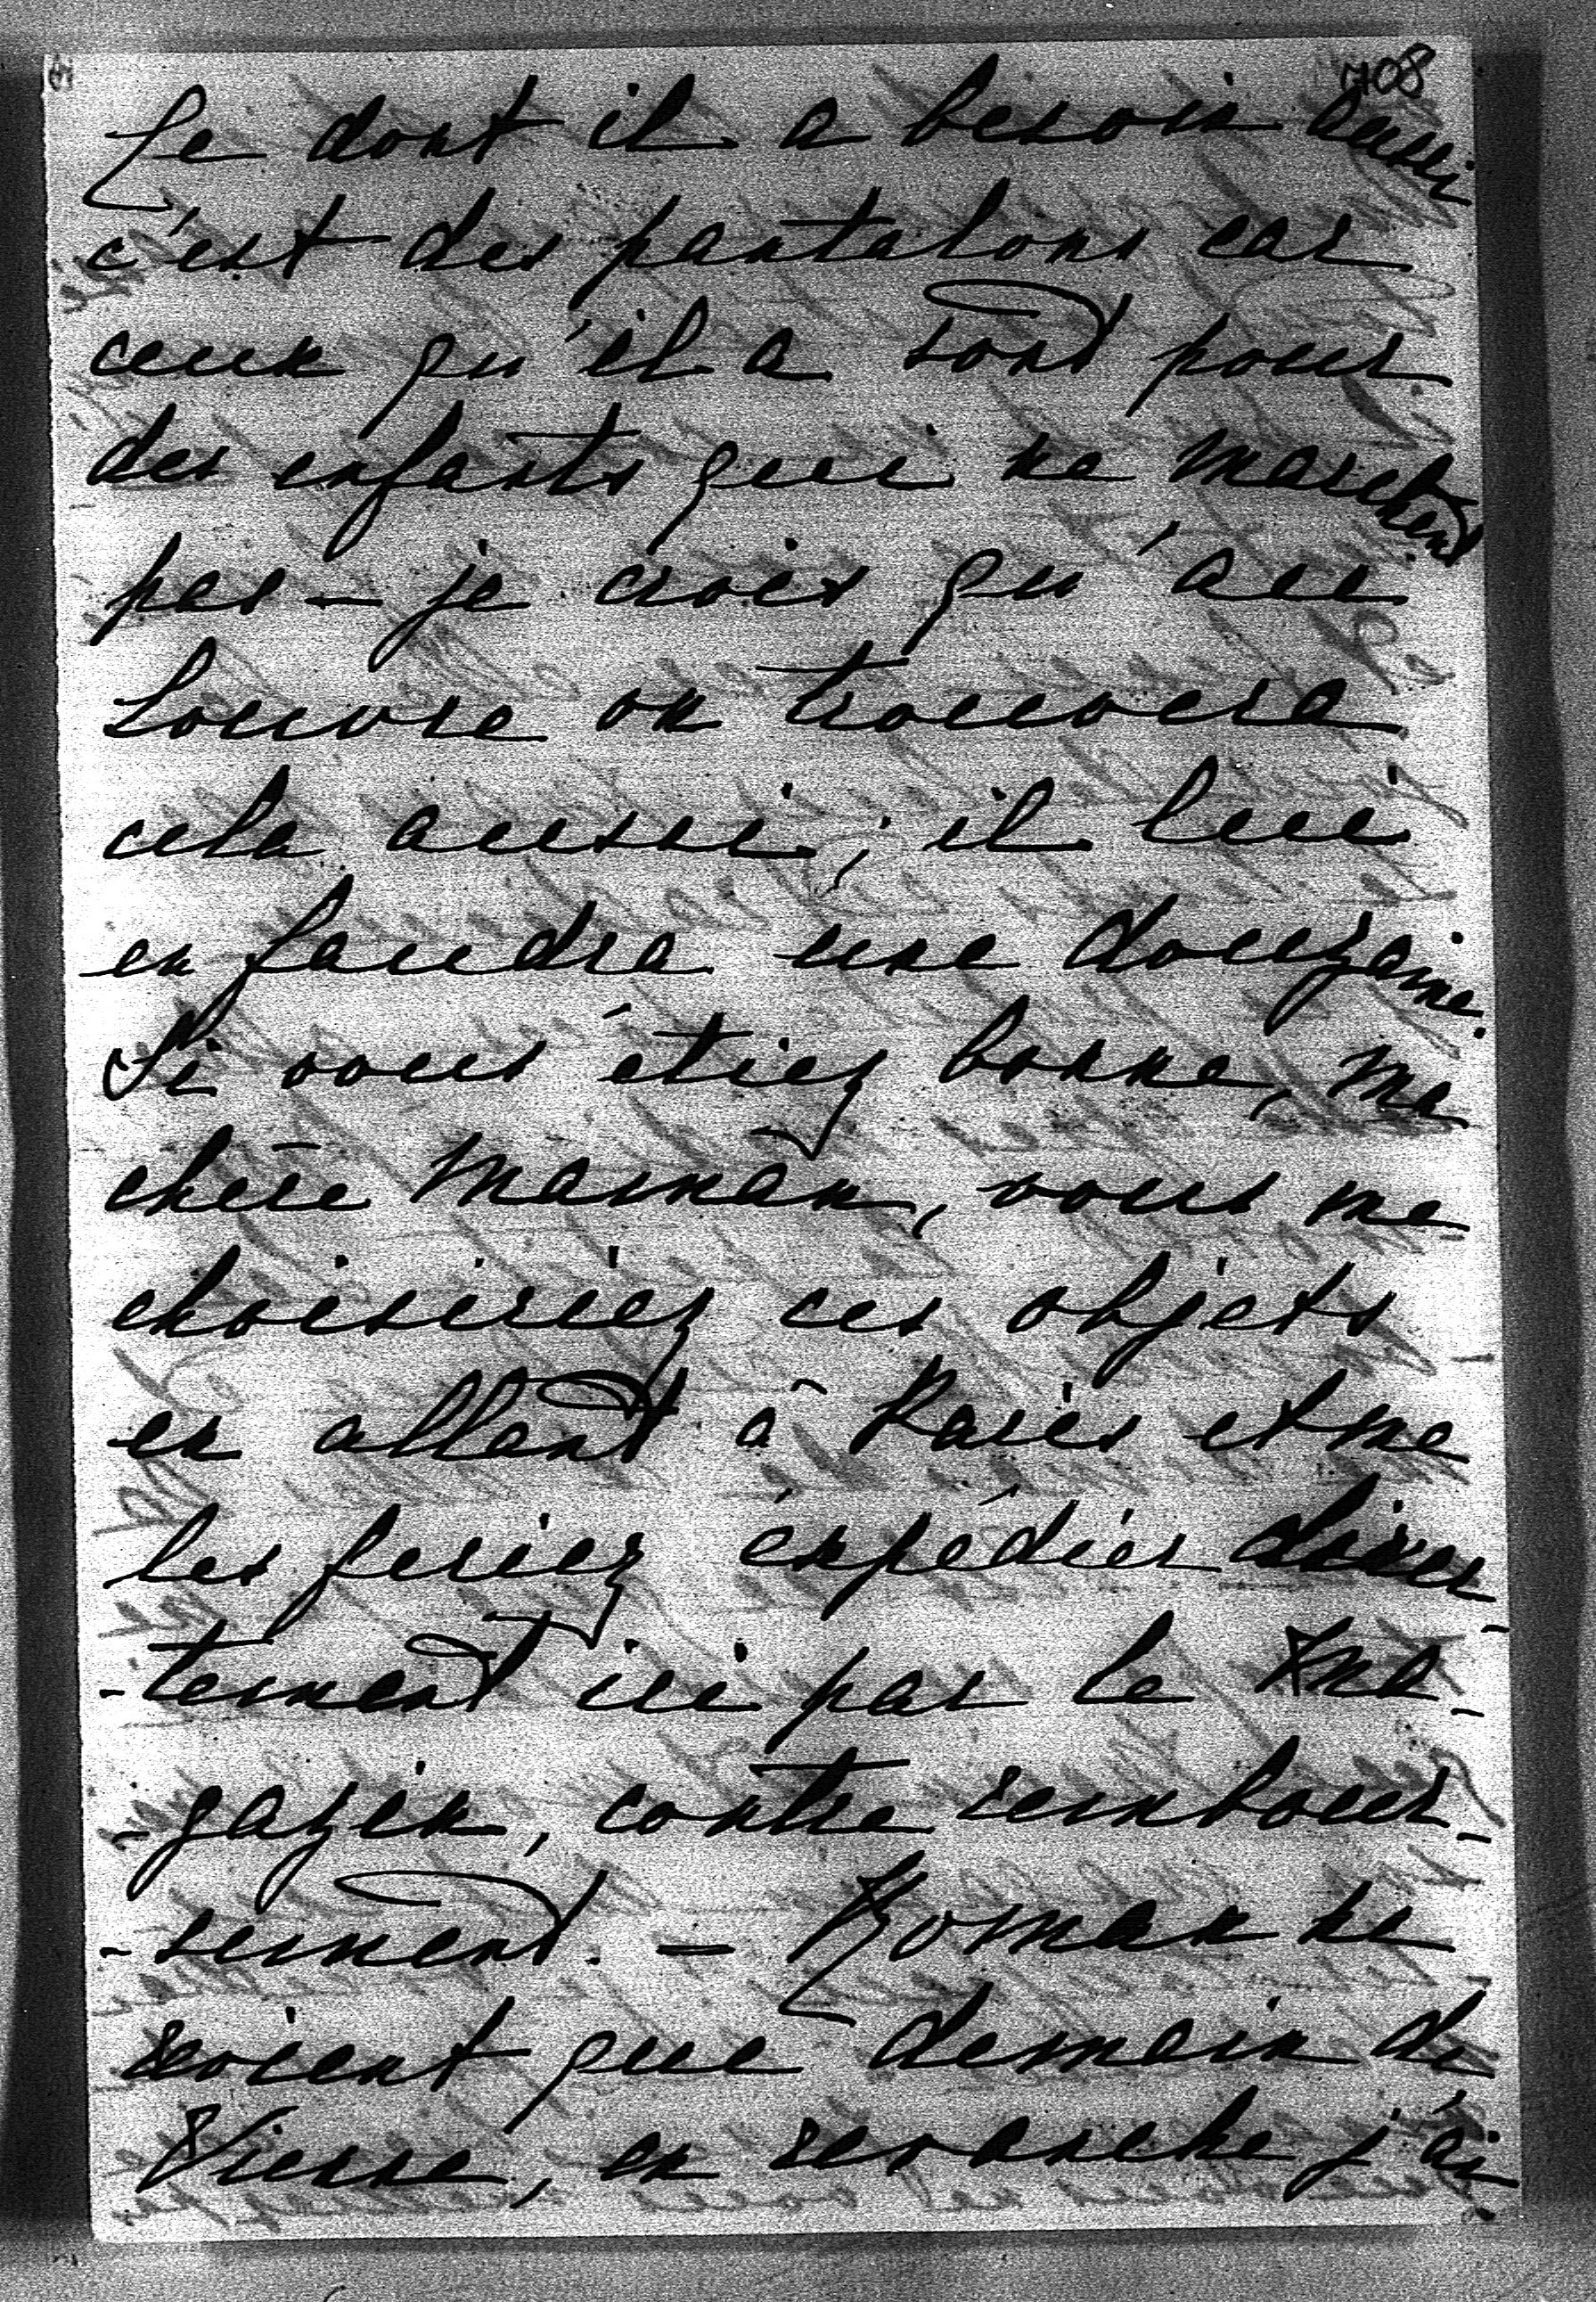 708
Ce dont il a besoin aussi
c'est des pantalons car
ceux qu'il a sont pour
des enfants qui ne marchent
pas – je crois qu'au
Louvre on trouvera
cela aussi; il lui
en faudra une douzaine.
Si vous étiez bonne, ma
chère Maman, vous me
choisiriez ces objets
en allant à Paris et me
les feriez expédier direc-
-tement ici par le ma-
-gazin, contre rembour-
-sement. – Roman ne
revient que demain de
Vienne, en revanche j'ai